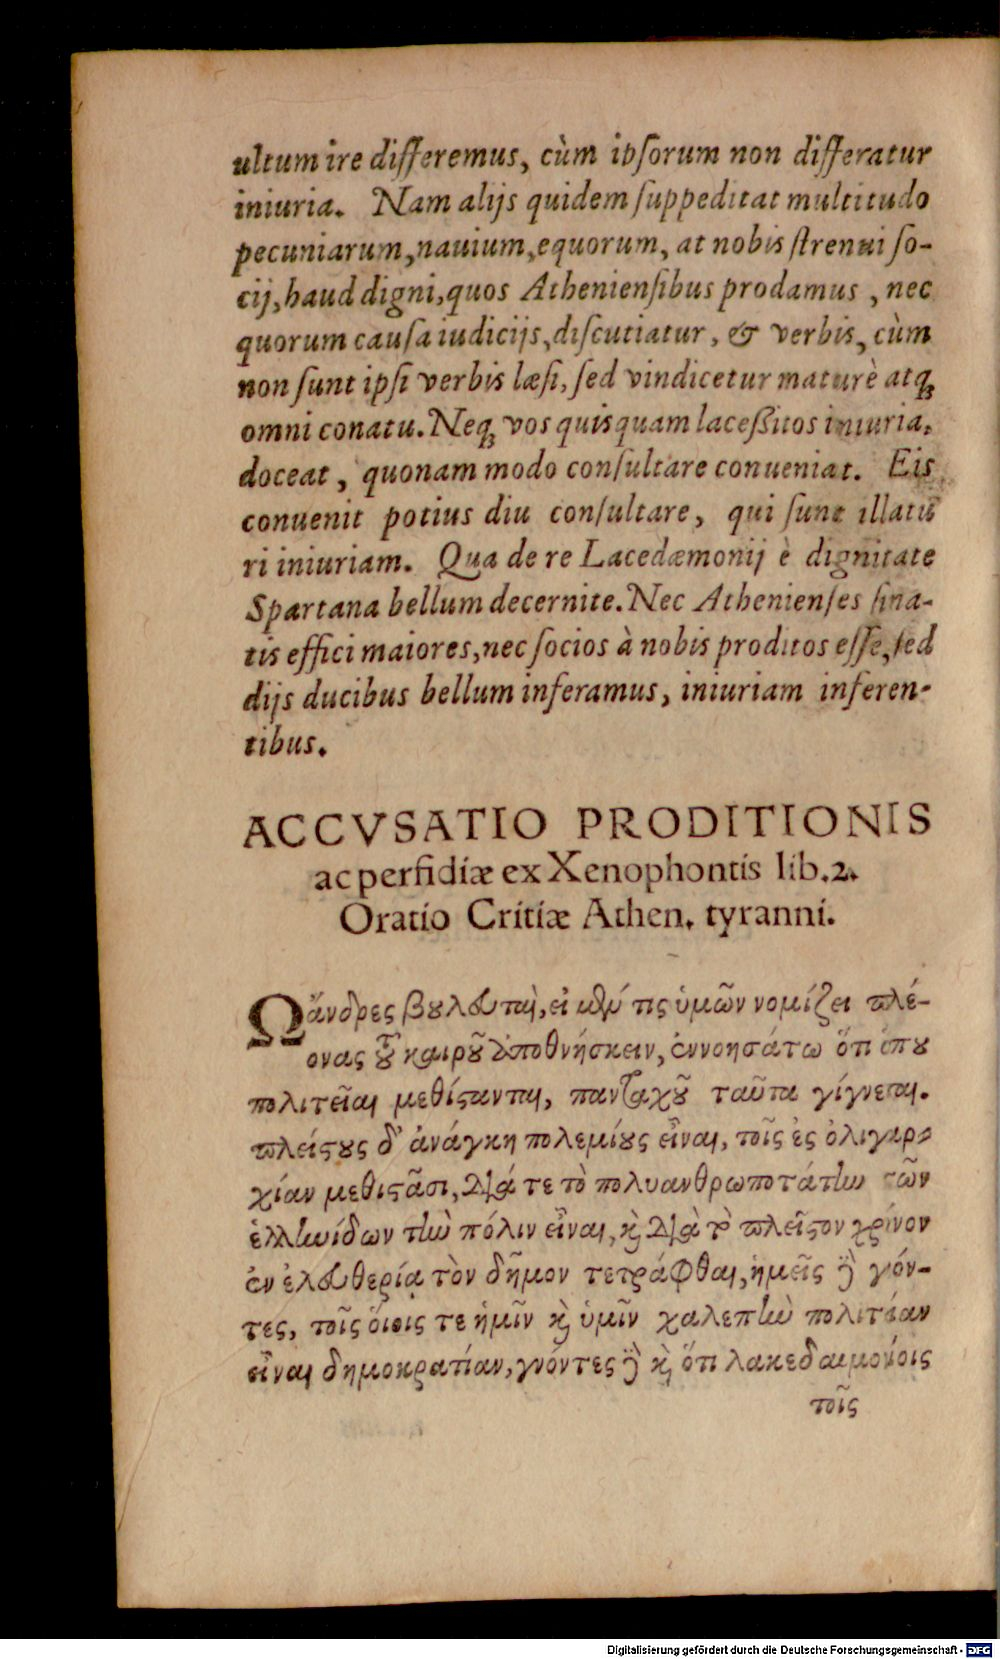 ultum ire differemus, cùm ipsorum non differatur
iniuria. Nam alijs quidem suppeditat multitudo
pecuniarum, nauium, equorum, at nobis strenui so-
cij, haud digni, quos Atheniensibus prodamus, nec
quorum causa iudicijs, discutiatur, & verbis, cùm
non sunt ipsi verbis læsi, sed vindicetur maturè atq;
omni conatu. Neq; vos quisquam lacessitos iniuria,
doceat, quonam modo consultare conueniat. Eis
conuenit potius diu consultare, qui sunt illatu
ri iniuriam. Qua de re Lacedæmonij è dignitate
Spartana bellum decernite. Nec Athenienses sina-
tis effici maiores, nec socios à nobis proditos esse, sed
dijs ducibus bellum inferamus, iniuriam inferen-
tibus.
ACCVSATIO PRODITIONIS
ac perfidiæ ex Xenophontis lib. 2.
Oratio Critiæ Athen. tyranni.
Ω ἄνδρες βουλευταὶ, εἰ μέν τις ὑμῶν νομίζει πλέ-
ονας τοῦ καιροῦ ἀποθνήσκειν, ἐννοησάτω ὅτι ὅπου
πολιτεῖαι μεθίστανται, πανταχοῦ ταῦτα γίγνεται.
πλείστους δ' ἀνάγκη πολεμίους εἶναι, τοῖς ἐς ὀλιγαρ-
χίαν μεθιστᾶσι, διά τε τὸ πολυανθρωποτάτην τῶν
ἑλληνίδων τὴν πόλιν εἶναι, καὶ διὰ τὸ πλεῖστον χρόνον
ἐν ἐλευθερίᾳ τὸν δῆμον τετράφθαι, ἡμεῖς δὲ γνόν-
τες, τοῖς οἵοις τε ἡμῖν καὶ ὑμῖν χαλεπὴν πολιτείαν
εἶναι δημοκρατίαν, γνόντες δὲ καὶ ὅτι λακεδαιμονίοις
τοῖς
Digitalisierung gefördert durch die Deutsche Forschungsgemeinschaft - DFG